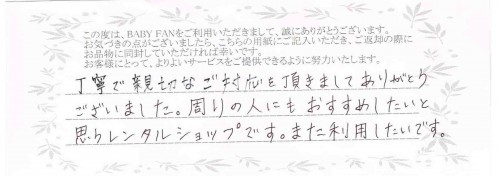 この度は、BABY FANをご利用いただきまして、誠にありがとうございます。
お気づきの点がございましたら、こちらの用紙にご記入いただき、ご返却の際に
お品物に同封していただければ幸いです。
お客様にとって、よりよいサービスをご提供できるように努力いたします。
丁寧で親切なご対応を頂きましてありがとう
ございました。周りの人にもおすすめしたいと
思うレンタルショップです。また利用したいです。